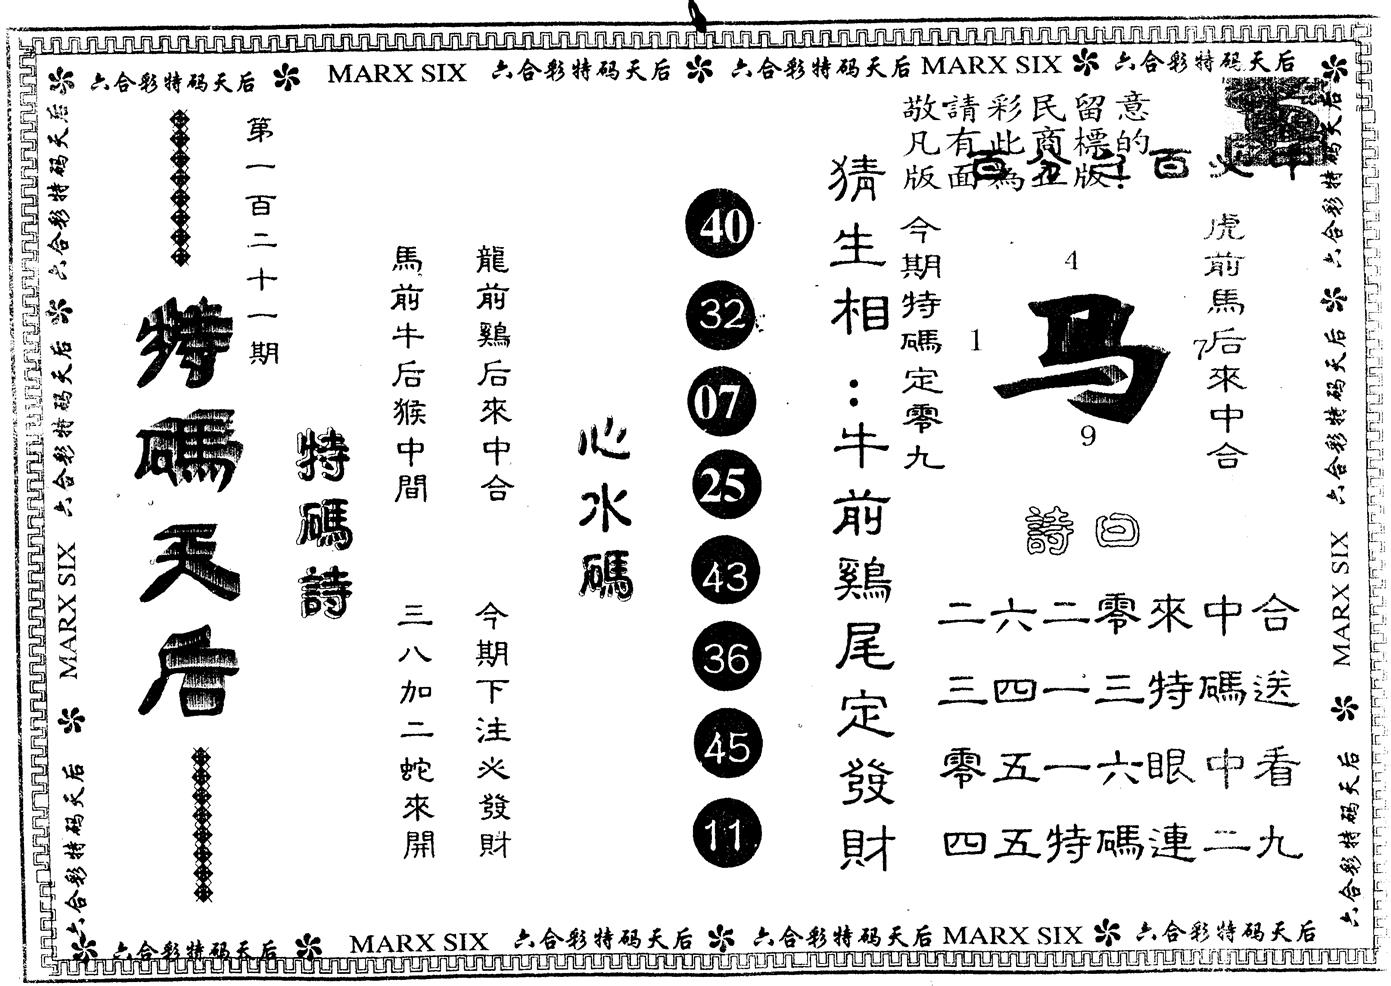 六合彩特码天后 MARX SIX 六合彩特码天后 六合彩特码天后 MARX SIX 六合彩特码天后
敬請彩民留意
凡有此商標的
版面為正版!
第一百二十一期
特碼天后
特碼詩
龍前鷄后來中合
馬前牛后猴中間
今期下注火發財
三八加二蛇來開
心水碼
40
32
07
25
43
36
45
11
猜生相:牛前鷄尾定發財
今期特碼定零九
4
1
马
7
9
虎前馬后來中合
詩曰
二六二零來中合
三四一三特碼送
零五一六眼中看
四五特碼連二九
六合彩特码天后 六合彩特码天后 六合彩特码天后 MARX SIX 六合彩特码天后
六合彩特码天后 六合彩特码天后 MARX SIX 六合彩特码天后
六合彩特码天后 MARX SIX 六合彩特码天后 六合彩特码天后 MARX SIX 六合彩特码天后